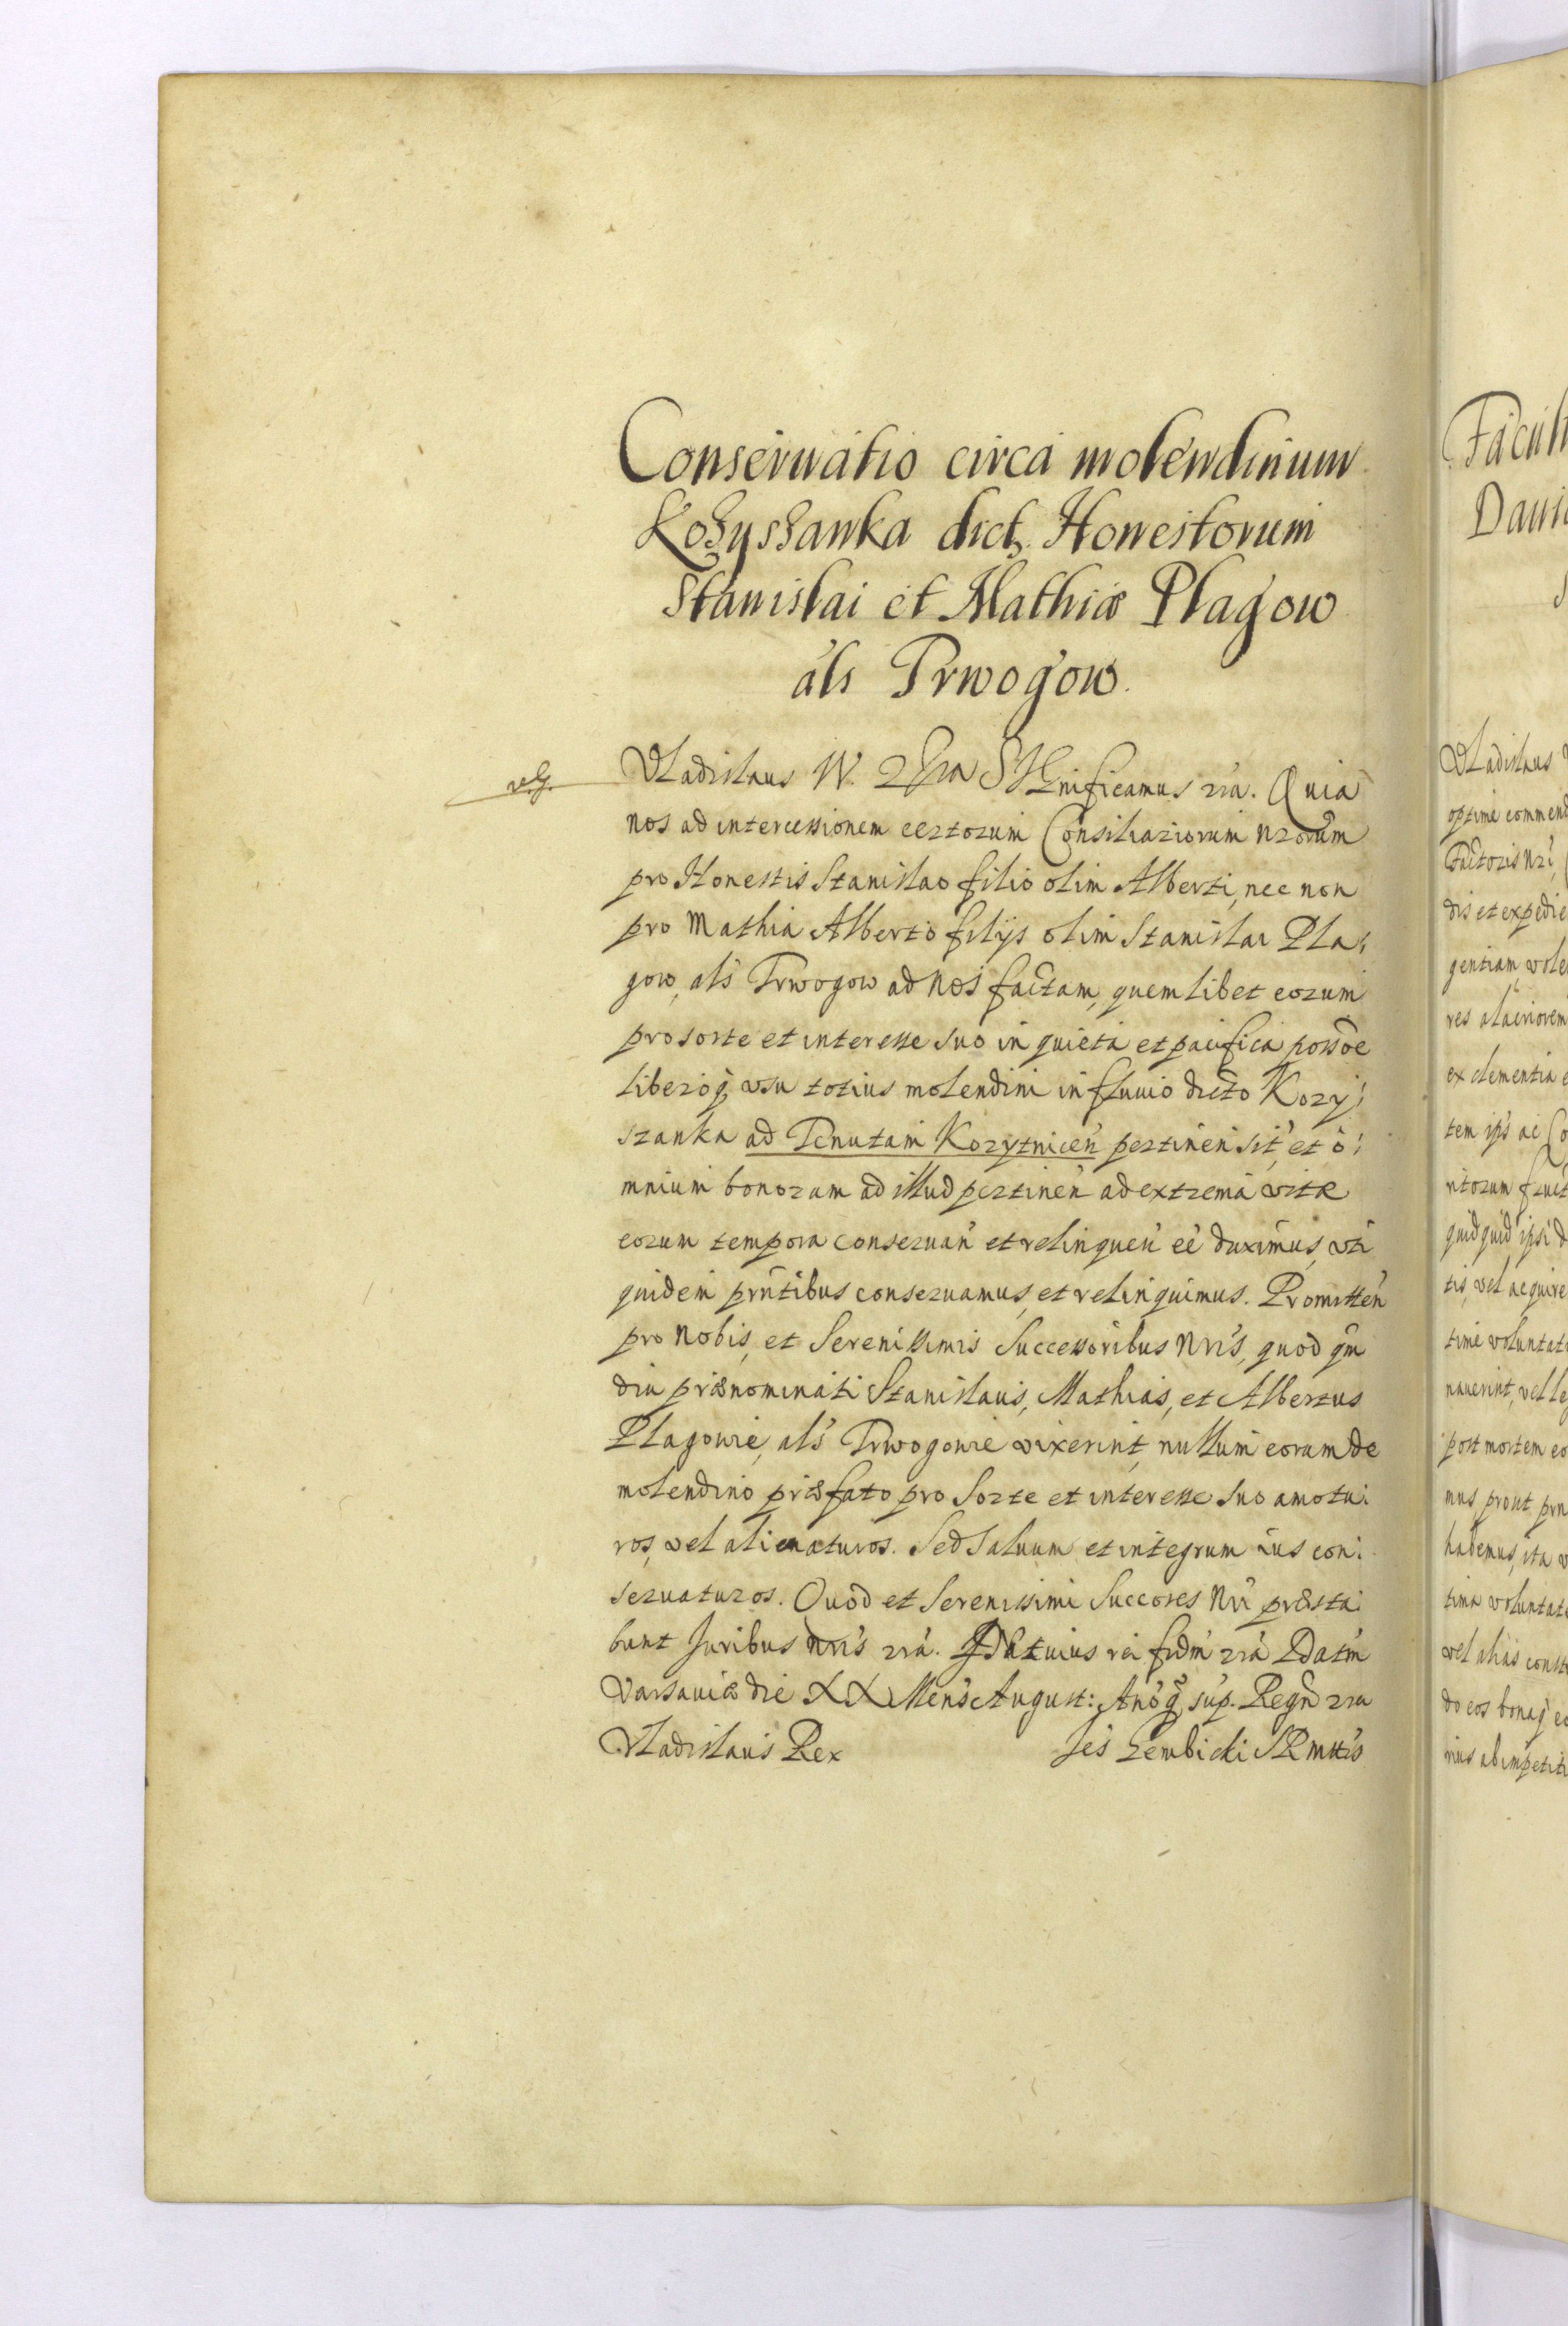 Conseruatio circa molendinum
Kozyszanka dict. Honestorum
Stanislai et Mathiæ Plagow
als Trwogow.
Vladislaus IV. Significamus rra. Quia
nos ad intercessionem certorum Consiliariorum nrorum
pro Honestis Stanislao filio olim Alberti, nec non
pro Mathia Alberto filijs olim Stanislai Pla:
gow, als Trwogow ad nos factam, quemlibet eorum
pro sorte et interesse suo in quieta et pacifica possoe
liberoq, vsu totius molendini in fluuio dicto Kozy:
szanka ad Tenutam Kozytnicen pertinen sit, et o:
mnium bonorum ad illud pertinen ad extrema vitæ
eorum tempora conseruan et relinquen eé duximus, vti
quidem prntibus conseruamus, et relinquimus. Promitten
pro nobis, et Serenissimis Successoribus nris, quod qm
diu prænominati Stanislaus, Mathias, et Albertus
Plagowie, als Trwogowie vixerint, nullum eorum de
molendino præfato pro sorte et interesse suo amotu:
ros, vel alienaturos. Sed saluum et integrum ius con:
seruaturos. Quod et Serenissimi Succores nri præsta:
bunt Juribus nris rra. In cuius rei fidm rra Datm
Varsauiæ die XX Mens August: Anoq sup. Regn rra
Vladislaus Rex Jes Gembicki SRMttis
Facul
Daui
Vladislaus
optime commend
Factoris nri,
dis et expedie
gentiam vole
res alacriorem
ex clementia e
tem ips ac Co
ritorum fruct
quidquid ipsi d
tis, vel acquire
time voluntat
nauerint, vel le
post mortem eo
mus prout prn
habemus, ita v
tima voluntat
vel alias const
do eos bonaq eo
rius ab impetiti